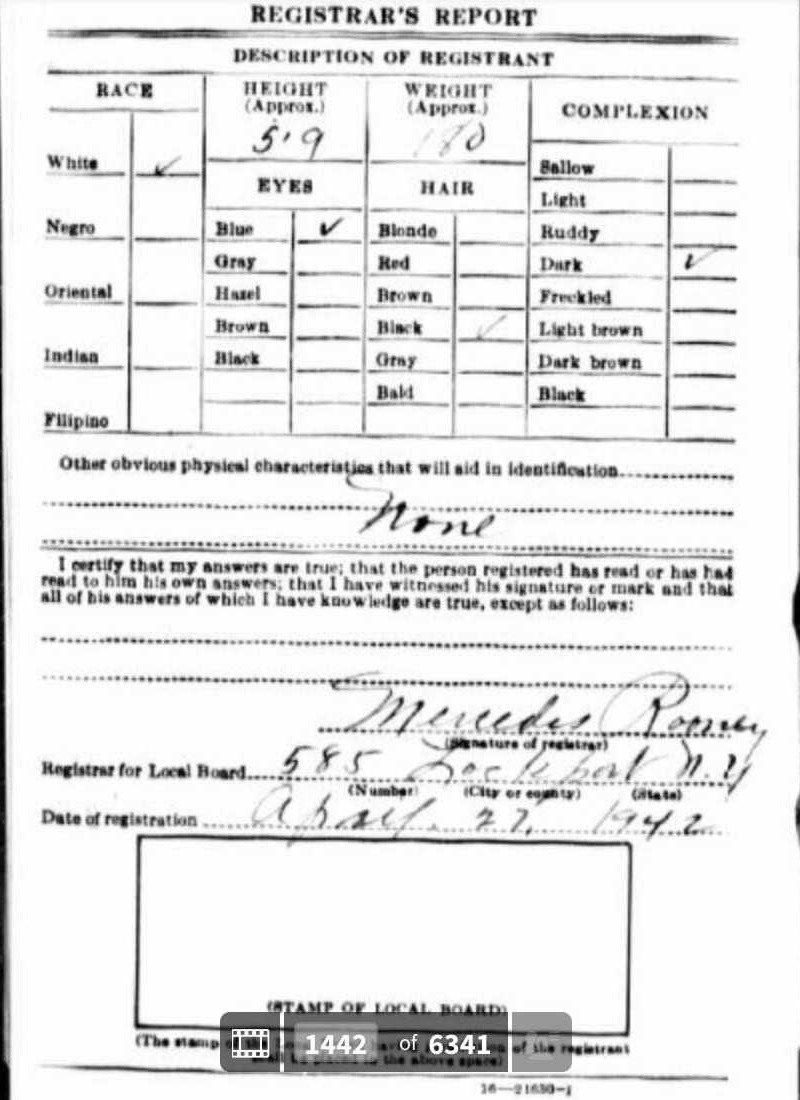 REGISTRAR'S REPORT
DESCRIPTION OF REGISTRANT
RACE
HEIGHT
(Approx.)
5'9
WEIGHT
(Approx.)
180
COMPLEXION
White ✓
Negro
Oriental
Indian
Filipino
EYES
Blue ✓
Gray
Hazel
Brown
Black
HAIR
Blonde
Red
Brown
Black ✓
Gray
Bald
Sallow
Light
Ruddy
Dark ✓
Freckled
Light brown
Dark brown
Black
Other obvious physical characteristics that will aid in identification
None
I certify that my answers are true; that the person registered has read or has had
read to him his own answers; that I have witnessed his signature or mark and that
all of his answers of which I have knowledge are true, except as follows:
Mercedes Rooney
(Signature of registrar)
Registrar for Local Board 585 Lockport N.Y
(Number) (City or county) (State)
Date of registration April 27, 1942
(STAMP OF LOCAL BOARD)
(The stamp of the of the registrant
shall be placed in the above space)
1442 of 6341
16—21630-1